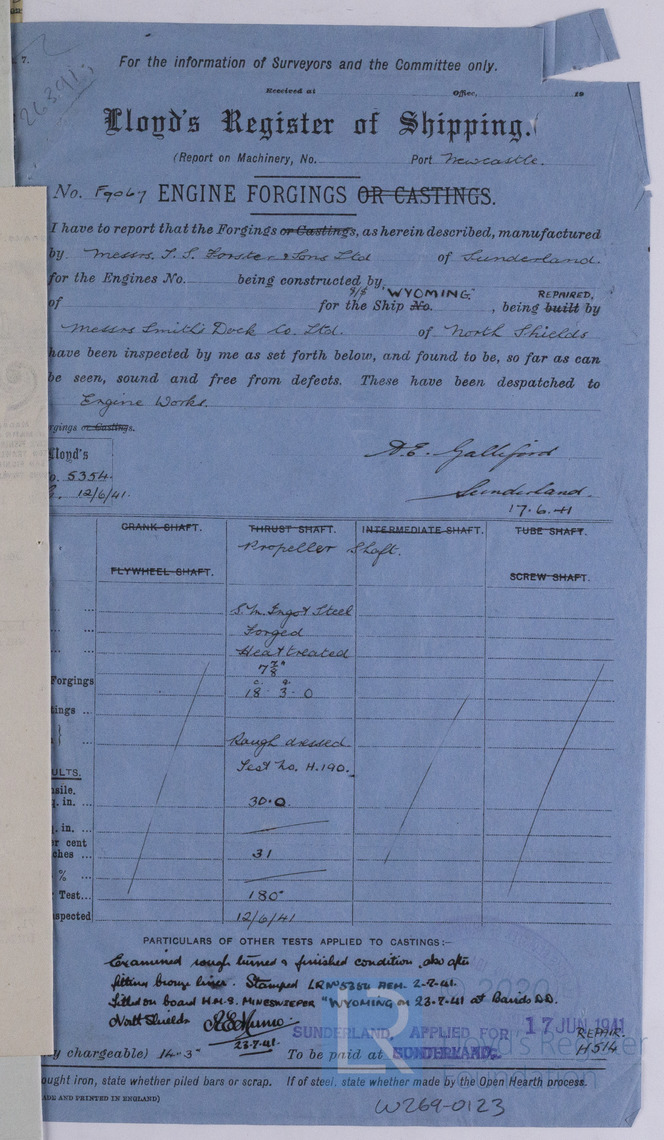 7.
26391
For the information of Surveyors and the Committee only.
Received at Office, 19
Lloyd's Register of Shipping.
(Report on Machinery, No. Port Newcastle.
No. F9067 ENGINE FORGINGS OR CASTINGS.
I have to report that the Forgings or Castings, as herein described, manufactured
by Messrs. T. S. Forster & Sons Ltd of Sunderland.
for the Engines No. being constructed by
of for the Ship No. S/S "WYOMING", being built REPAIRED, by
Messrs Smith's Dock Co. Ltd. of North Shields
have been inspected by me as set forth below, and found to be, so far as can
be seen, sound and free from defects. These have been despatched to
Engine Works.
rgings or Castings.
Lloyd's
o. 5354.
12/6/41.
A.E. Galliford
Sunderland.
17.6.41
CRANK SHAFT. THRUST SHAFT. INTERMEDIATE SHAFT. TUBE SHAFT.
Propeller Shaft.
FLYWHEEL SHAFT. SCREW SHAFT.
... S.M. Ingot Steel
... Forged
... Heat treated
7 7/8"
c. q.
Forgings 18 3 0
tings ...
} ... Rough dressed
Test No. H.190.
ULTS.
nsile.
q. in. ... 30.0
q. in. ...
er cent
ches ... 31
% ...
Test... 180°
nspected 12/6/41
PARTICULARS OF OTHER TESTS APPLIED TO CASTINGS:—
Examined rough turned & finished condition, also after
fitting bronze liner. Stamped LR No 5354 AEM. 2-7-41.
Fitted on board H.M.S. MINESWEEPER "WYOMING on 23-7-41 at Bands D.D.
North Shields A.E. Munro
23.7.41.
SUNDERLAND. APPLIED FOR 17 JUN 1941
REPAIR.
H514
y chargeable) 14-3" To be paid at SUNDERLAND.
ought iron, state whether piled bars or scrap. If of steel, state whether made by the Open Hearth process.
ADE AND PRINTED IN ENGLAND)
LR
2020
Lloyd's Register
Foundation
W269-0123